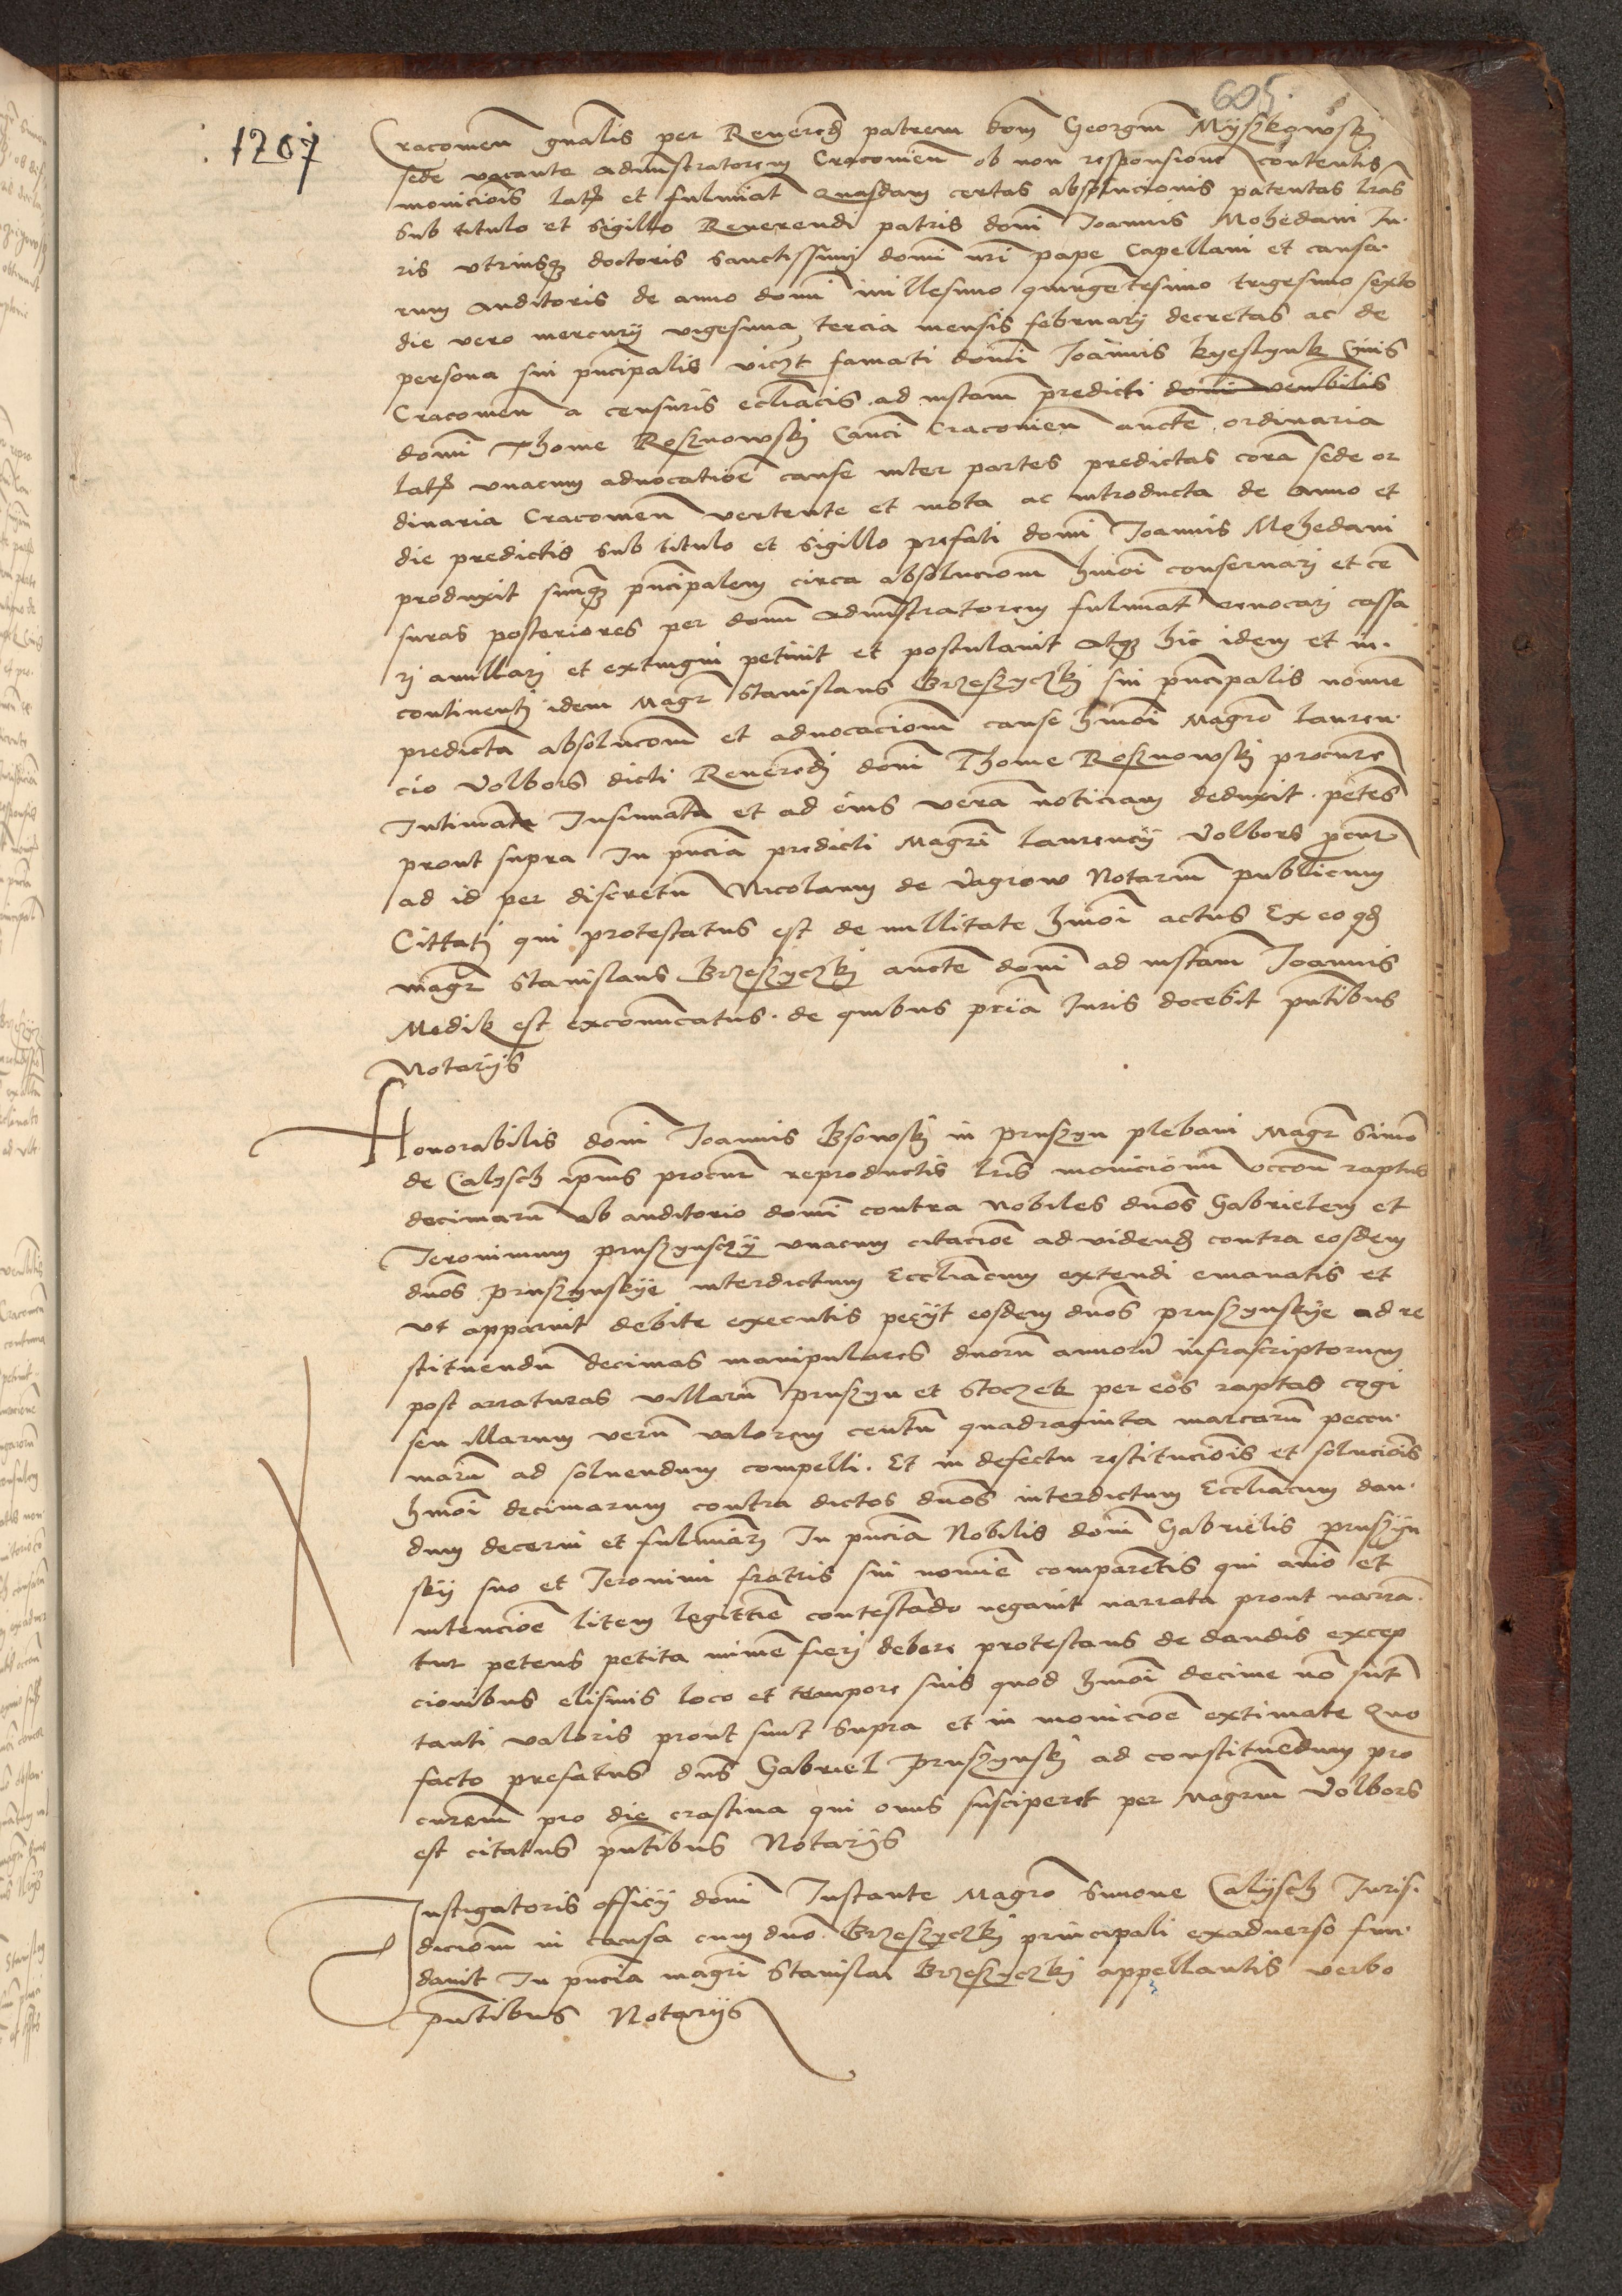 605.
1207
Cracomen̄ gn̄alis per Reuerēd patrem dom̄ Georgiū Myszkowskj
sede vacante administratorem Cracomen̄ ob non responsione contentis
monicioīs lat et fulminat Quasdam certas absolucionis patentas lr̄as
sub titulo et sigillo Reuerendi patris domī Joannis Mohedani Ju·
ris vtriusqȝ doctoris sanctissimi dominī nrī pape Capellani et causa·
rum auditoris de anno domī millesimo quingētesimo trigesimo sexto
die vero mercurij vigesima tercia mensis februarij decretas ac de
persona sui pn̄cipalis viczt famati domī Joannis kyeslynk Ciuis
Cracomen̄ a censuris ecclīacis ad instam̄ predicti domī venbilis
domī Thome Rosznowskj Can̄ci Cracouien̄ aucte ordinaria
lat vnacum aduocatiōe cause inter partes predictas corā sede or
dinaria Cracomen̄ vertente et mota ac introducta de Anno et
die predictis sub titulo et sigillo prefati domī Joannis Mohedani
produxit suumqȝ pn̄cipalem circa absolucionem hm̄oi conseruarj et cē
suras posteriores per domī Administratorem fulminat reuocarj cassa
rj anullarj et extingui petiuit et postulauit Atqȝ hic idem et in·
continenti idem Magr̄ Stanislaus Brzeszyczkj sui pn̄cipalis noīe
predictā absolucoēm et aduocacionem cause hm̄oi Magrō Lauren·
cio Volbors dicti Reuerēdj domī Thome Rosznowskj procure
Intimata Insinuata et ad eius verā noticiam deduxit petēs
prout supra In pn̄ciā predicti Magrī Laurencij Volbors pcur̄
ad id per discretū Nicolaum de Vagrow Notariū publicum
Cittatj qui protestatus est de nullitate hm̄oi actus Ex eo qd
magr̄ Stanislaus Brzeszyczkj aucte domī ad instam̄ Joannis
Medik est excomunicatus de quibus pn̄ciā Juris docebit pn̄tibus
Notarijs
Honorabilis domī Joannis Bsowskj in Pruszyn plebani Magr̄ Simō
de Calysch ipius procur̄ reproductis lrīs monicionū occoē raptus
decimarū Ab auditorio domī contra Nobiles dn̄os Gabrielem et
Jeronimum pruszynsczy vnacum citacioē ad videnđ contra eosdem
dn̄os pruszynskye interdictum Ecclīacum extendi emanatis et
vt apparuit debite executis pecyt eosdem dn̄os pruszynskye ad re
stituendū decimas manipulares duorū annorū infrascriptorum
post arraturas villarū pruszyn et Stoczek per eos raptas cogi
seu illarum verū valorem centū quadraginta marcarū pecu·
niarū ad soluendum compelli. Et in defectu restitucionīs et solucionīs
hm̄oi decimarum contra dictos dn̄os interdictum Ecclīacum dan·
dum decerni et fulminarj In pn̄ciā Nobilis domī Gabrielis pruszyn
skij suo et Jeronimi fratris sui nomīe comparētis qui amō et
intencioē litem legittīe contestādo negauit narrata prout narrā·
tur petens petita mīme fieri debere protestans de dandis excep
cionibus elisiuis loco et tempore suis quod hm̄oi decime nō sūt
tanti valoris prout sunt supra et in monicioē extimate Quo
facto prefatus dn̄s Gabriel Pruszynskj ad constituēdum pro
curēm pro die crastina qui onus susciperet per Magrm̄ Volbors
est citatus pn̄tibus Notarijs
Instigatoris officij domī Instante Magrō Simone Calysch Juris·
dicionem in causa cum dn̄o Brzeszyczkj principali exaduerso fun·
dauit In pn̄cia magrī Stanislai Brzeszyczkj appellantis verbo
pn̄tibus Notarijs